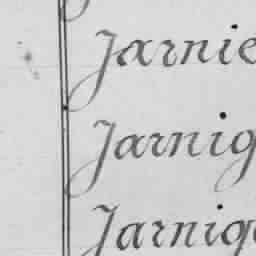 Jarnie
Jarnig
Jarnig